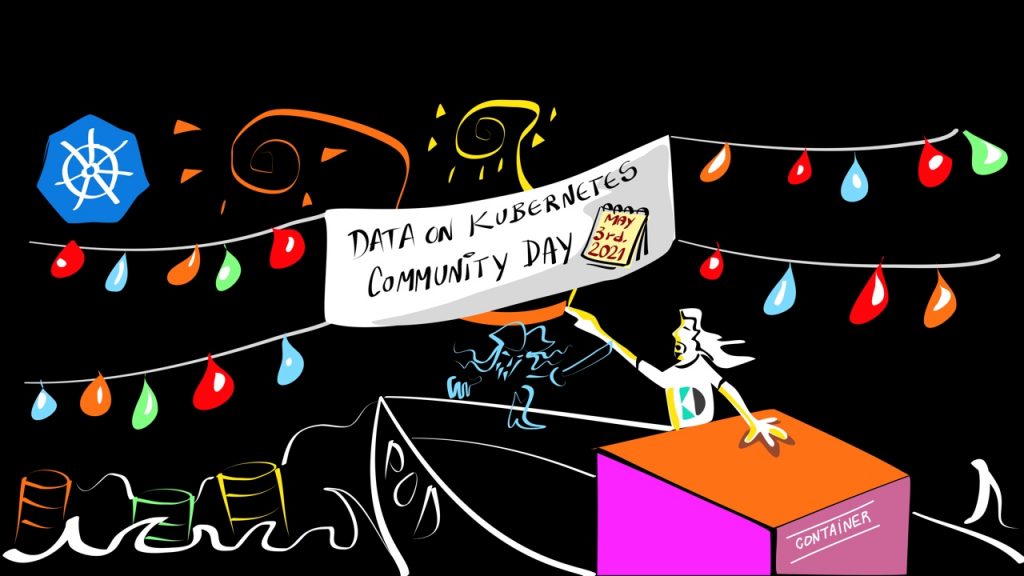 DATA ON KUBERNETES
COMMUNITY DAY
MAY
3rd.
2021
POD
CONTAINER